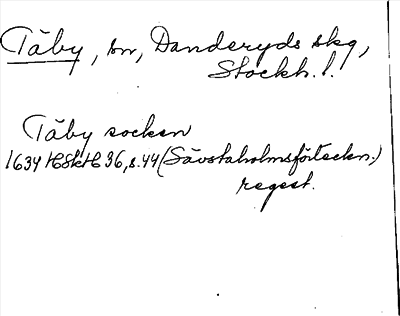 Täby, sn, Danderyds skg,
Stockh. l.
Täby socken
1634 HSkH 36, s. 44 (Sävstaholmsförteckn.)
regest.